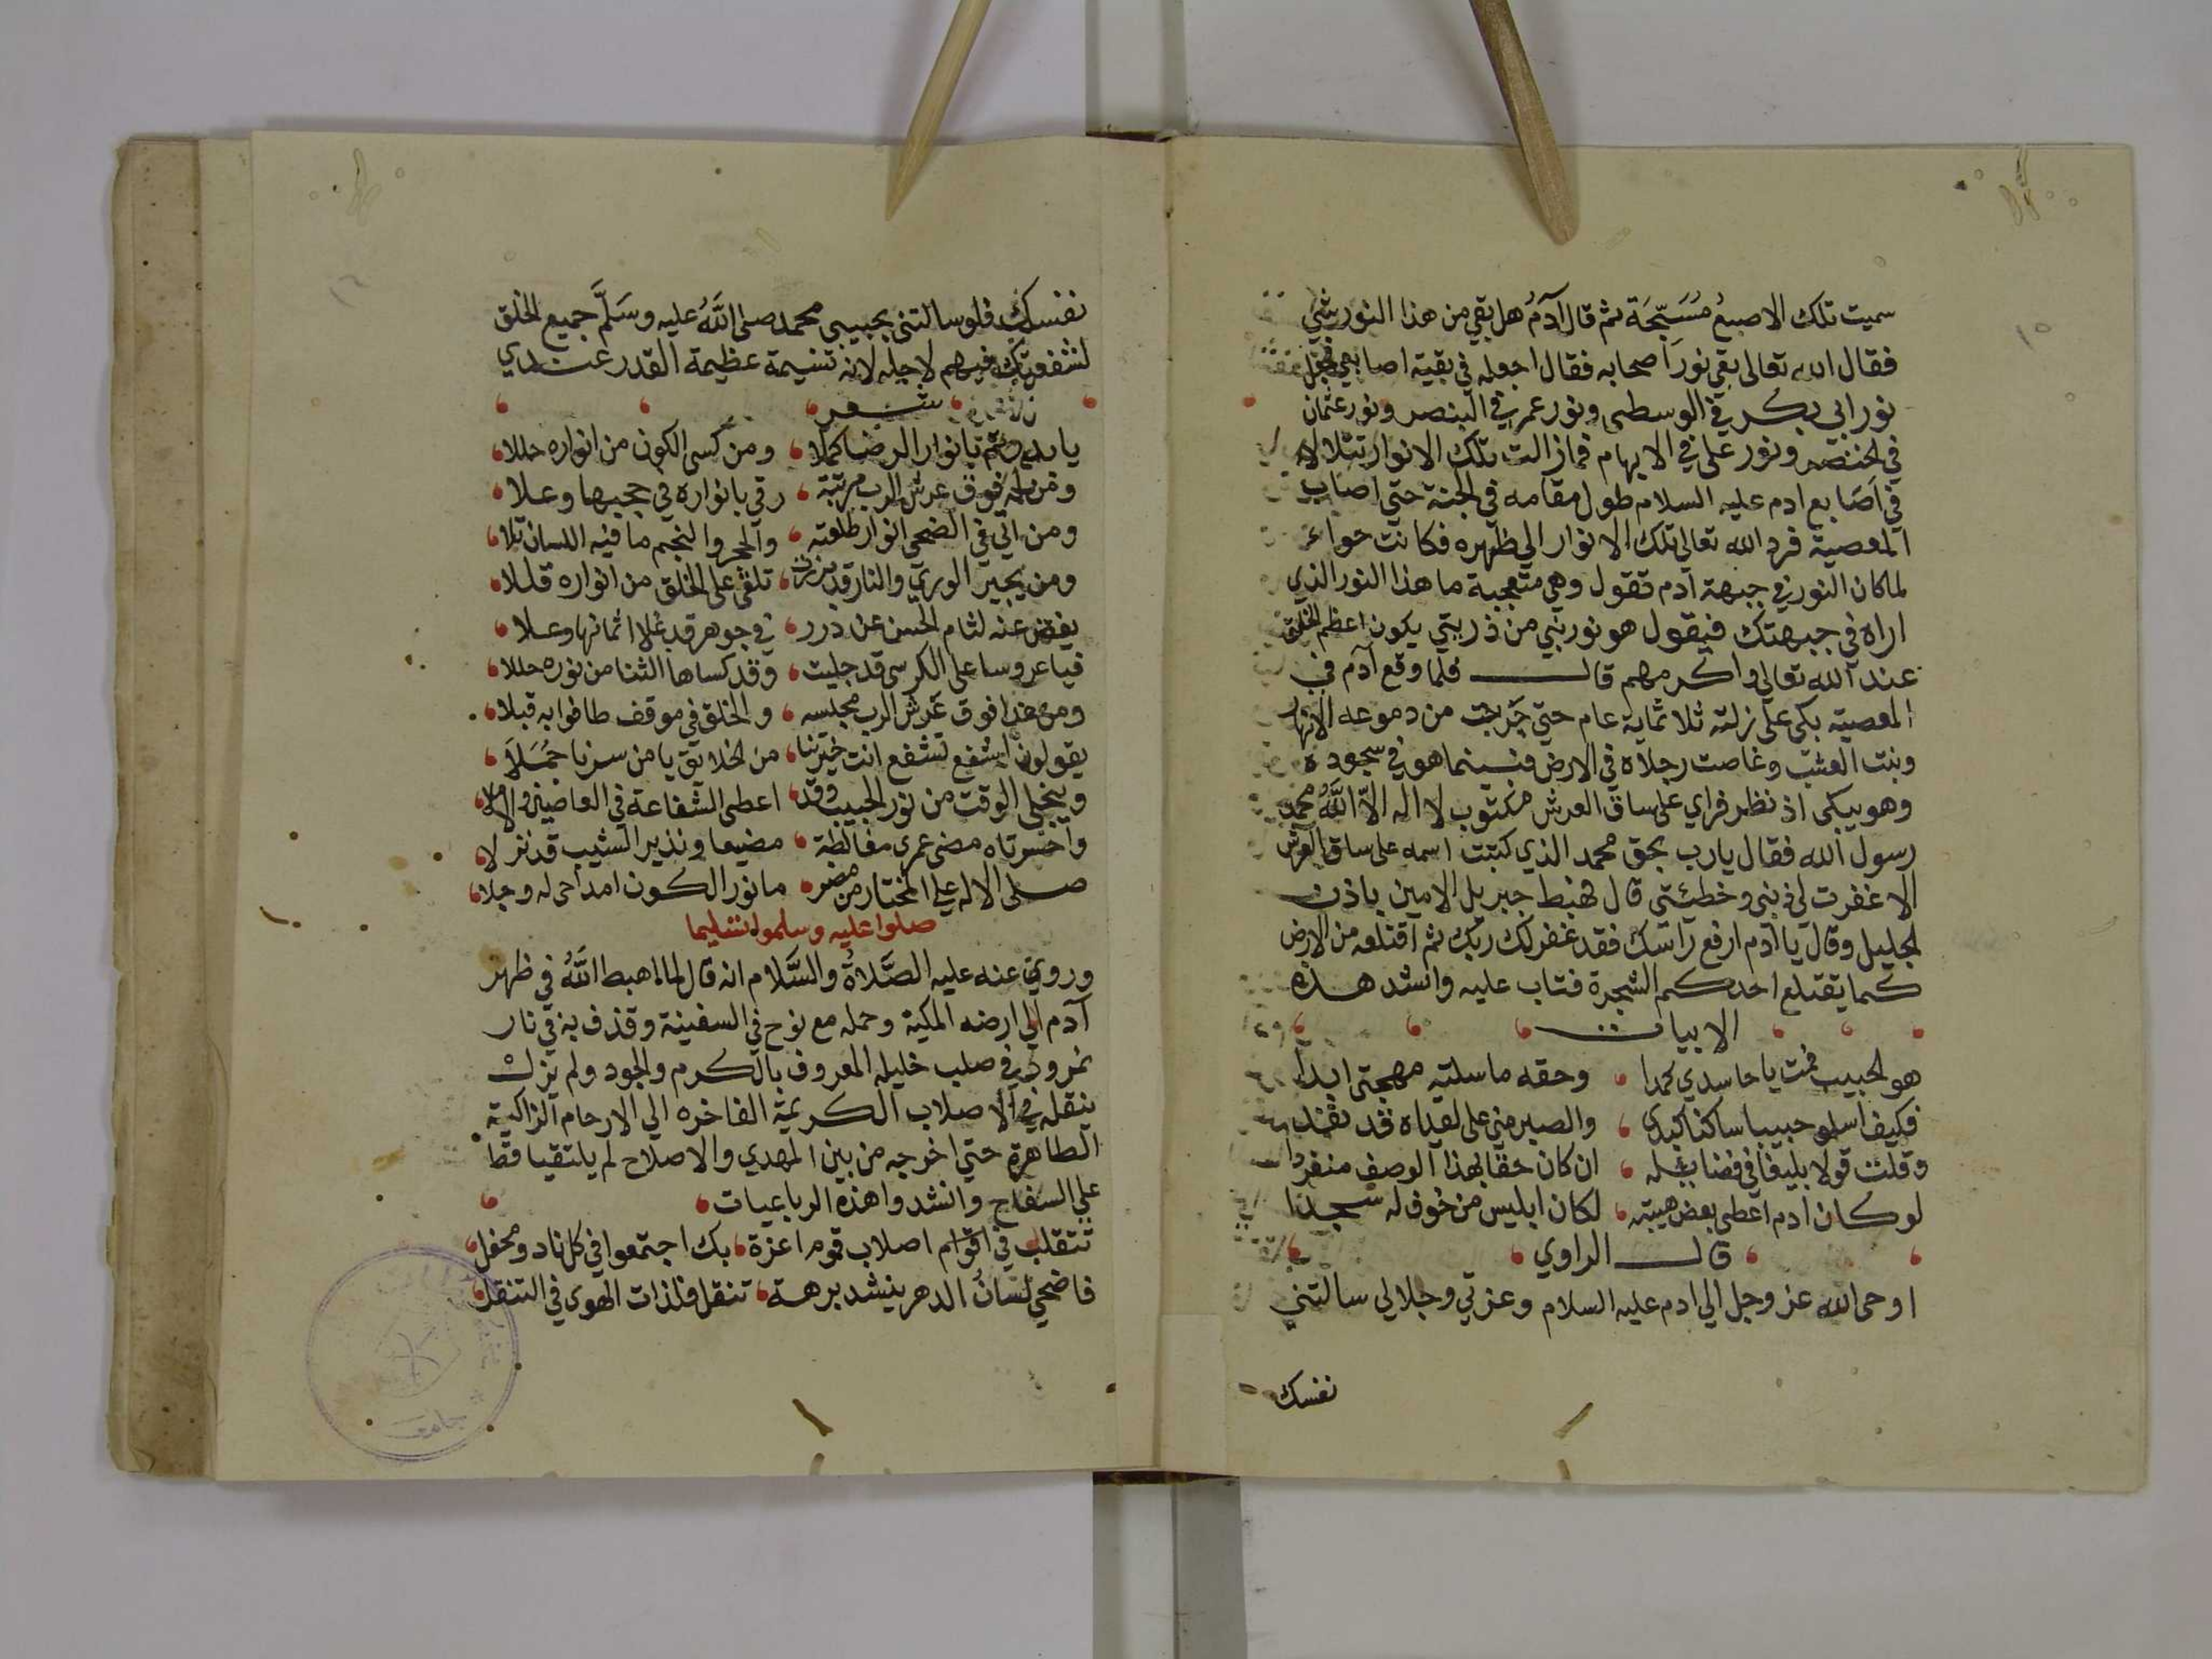 ١٥
سميت تلك الاصبعُ مُسَبِّحَة ثم قال آدمُ هل بقي من هذا النور شي
فقال الله تعالى بقي نورَ اصحابه فقال اجعله في بقية اصابعي فجعل
نور ابي بكر في الوسطى ونور عمر في البنصر ونور عثمان
في الخنصر ونور علي في الابهام فمازالت تلك الانوار تتلالا
في اَصَابع ادم عليه السلام طول مقامه في الجنة حتي اصاب
المعصية فرد الله تعالي تلك الانوار الي ظهره فكانت حوا
لما كان النور في جبهة آدم تقول وهي متعجبة ما هذا النور الذي
اراه في جبهتك فيقول هو نور نبي من ذريتي يكون اعظم الخلق
عند الله تعالي واكرمهم قال فلما وقع آدم في
المعصية بكى على زلته ثلاثماية عام حتي جَرَت من دموعه الانهار
ونبت العشب وغاصت رجلاه في الارض فبينما هو في سجوده
وهو يبكى اذ نظر فراي على ساق العرش مكتوب لا اله الاّ اللَّهُ محمد
رسول الله فقال يارب بحق محمد الذي كتبت اسمه على ساق العرش
الا غفرت لى ذنبى وخطئتى قال فهبط جبريل الامين باذن
الجليل وقال يا آدم ارفع راسك فقد غفر لك ربك ثم اقتلعه من الارض
كما يقتلع احدكم الشجرة فتاب عليه وانشد هذه
الابيات
هو الحبيب فمت يا حاسدي كمدا وحقه ماسلته مهجتى ابدا
فكيف اسلو حبيبا ساكنا كبدى والصبر مني على لقياه قد نفدا
وقلت قولا بليغا في فضايله ان كان حقا بهذا الوصف منفردا
لو كان ادم اعطى بعض هيبته لكان ابليس من خوف له سجدا
قال الراوي
اوحى الله عز وجل الي ادم عليه السلام وعزتي وجلالي سالتني
نفسك
١٦
نفسك فلو سالتنى بحبيبي محمد صلى اللَّهُ عليه وسَلَّم جميع الخلق
لشفعتك فيهم لاجله لانه تسيمة عظيمة القدر عندي
شعر
يا بانوار الرضا كملا ومن كسى الكون من انواره حللا
ومن له فوق عرش الرب مرتبة رقي بانواره في حجبها وعلا
ومن اتي في الضحي انوار طلعته والحجر والنجم ما فيه اللسان تلا
ومن يجير الوري والنار قد تلقى على الخلق من انواره قللا
عنه لثام الحسن عن درر في جوهر قد غلا اثمانها وعلا
فيا عروسا على الكرسى قد جليت وقد كساها الثنا من نوره حللا
ومن غدا فوق عَرش الرب مجلسه والخلق في موقف طافوا به قبلا
يقولون اشفع تشفع انت خيرتنا من الخلايق يا من سرنا جُمَلَا
وينجلى الوقت من نور الحبيب وقد اعطى الشفاعة في العاصين والاملا
واحسرتاه مضى عمرى مغالطة مضيعا ونذير الشيب قد نزلا
صلى الاله علي المختار من مضر ما نور الكون امداحى له وجلا
صلوا عليه وسلموا تسليما
وروي عنه عليه الصَّلاةُ والسَّلام انه قال لما اهبط اللَّهُ في ظهر
آدم الي ارضه المكية وحمله مع نوح في السفينة وقذف به في نار
نمرود في صلب خليله المعروف بالكرم والجود ولم يزل
ينقله في الاصلاب الكريمة الفاخره الي الارحام الزاكية
الطاهرة حتي اخرجه من بين المهدي والاصلاح لم يلتقيا قط
علي السفاح وانشدوا هذه الرباعيات
تتقلب في اقوام اصلاب قوم اعزة بك اجتمعوا في كل ناد ومحفل
فاضحي لسانُ الدهر ينشد برهة تنقل فلذات الهوى في التنقل
جامعة